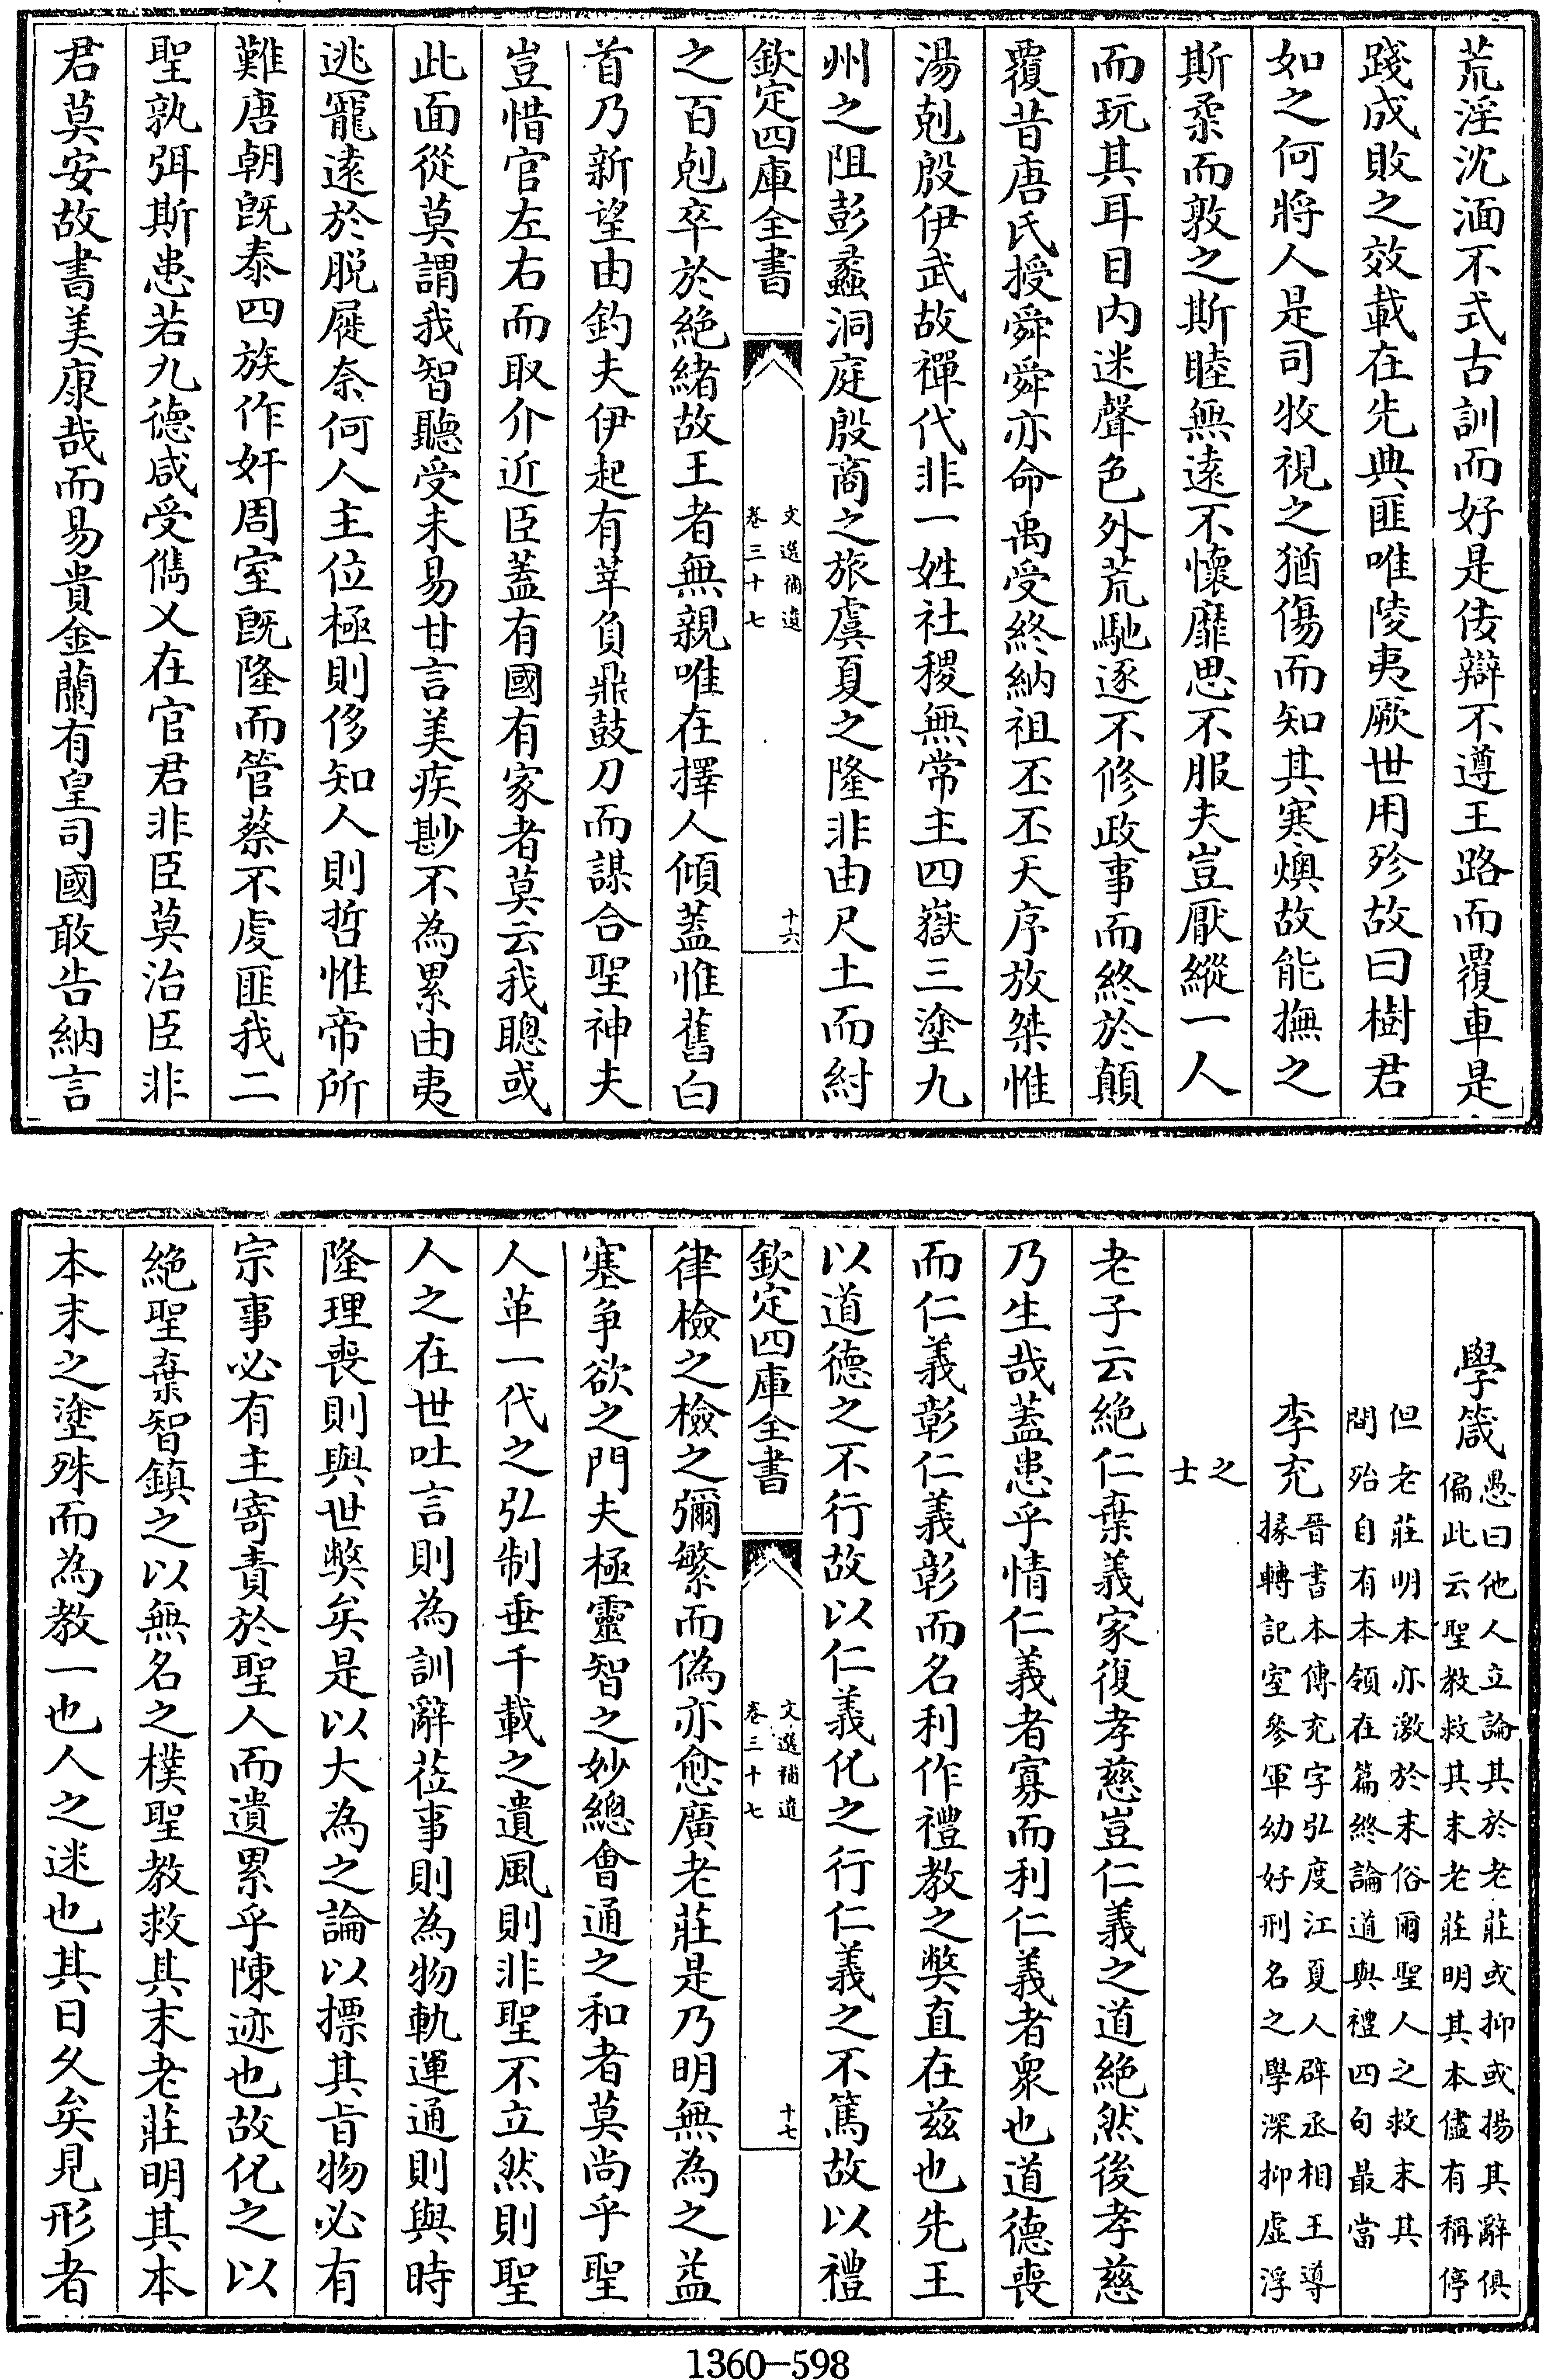 荒淫沈湎不式古訓而好是佞辯不遵王路而覆車是
踐成敗之效載在先典匪唯陵夷厥世用殄故曰樹君
如之何將人是司牧視之猶傷而知其寒燠故能撫之
斯柔而敦之斯睦無遠不懷靡思不服夫豈厭縱一人
而玩其耳目内迷聲色外荒馳逐不修政事而終於顛
覆昔唐氏授舜舜亦命禹受終納祖丕丕天序放桀惟
湯剋殷伊武故禪代非一姓社稷無常主四嶽三塗九
州之阻彭蠡洞庭殷商之旅虞夏之隆非由尺土而紂
欽定四庫全書
文選補遺
卷三十七
十六
之百剋卒於絶緒故王者無親唯在擇人傾蓋惟舊白
首乃新望由釣夫伊起有莘負鼎鼓刀而謀合聖神夫
豈惜官左右而取介近臣蓋有國有家者莫云我聰或
此面從莫謂我智聽受未易甘言美疾尠不為累由夷
逃寵遠於脱屣奈何人主位極則侈知人則哲惟帝所
難唐朝既泰四族作奸周室既隆而管蔡不虔匪我二
聖孰弭斯患若九德咸受儁乂在官君非臣莫治臣非
君莫安故書美康哉而易貴金蘭有皇司國敢告納言
學箴愚曰他人立論其於老莊或抑或揚其辭俱
偏此云聖教救其末老莊明其本儘有稱停
但老莊明本亦激於末俗爾聖人之救末其
間殆自有本領在篇終論道與禮四句最當
李充晉書本傳充字弘度江夏人辟丞相王導
掾轉記室參軍幼好刑名之學深抑虛浮
之
士
老子云絶仁棄義家復孝慈豈仁義之道絶然後孝慈
乃生哉蓋患乎情仁義者寡而利仁義者衆也道德喪
而仁義彰仁義彰而名利作禮教之弊直在兹也先王
以道德之不行故以仁義化之行仁義之不篤故以禮
欽定四庫全書
文選補遺
卷三十七
十七
律檢之檢之彌繁而偽亦愈廣老莊是乃明無為之益
塞争欲之門夫極靈智之妙總會通之和者莫尚乎聖
人革一代之弘制垂千載之遺風則非聖不立然則聖
人之在世吐言則為訓辭莅事則為物軌運通則與時
隆理喪則與世弊矣是以大為之論以摽其㫖物必有
宗事必有主寄責於聖人而遺累乎陳迹也故化之以
絶聖棄智鎮之以無名之樸聖教救其末老莊明其本
本末之塗殊而為教一也人之迷也其日久矣見形者
1360—598